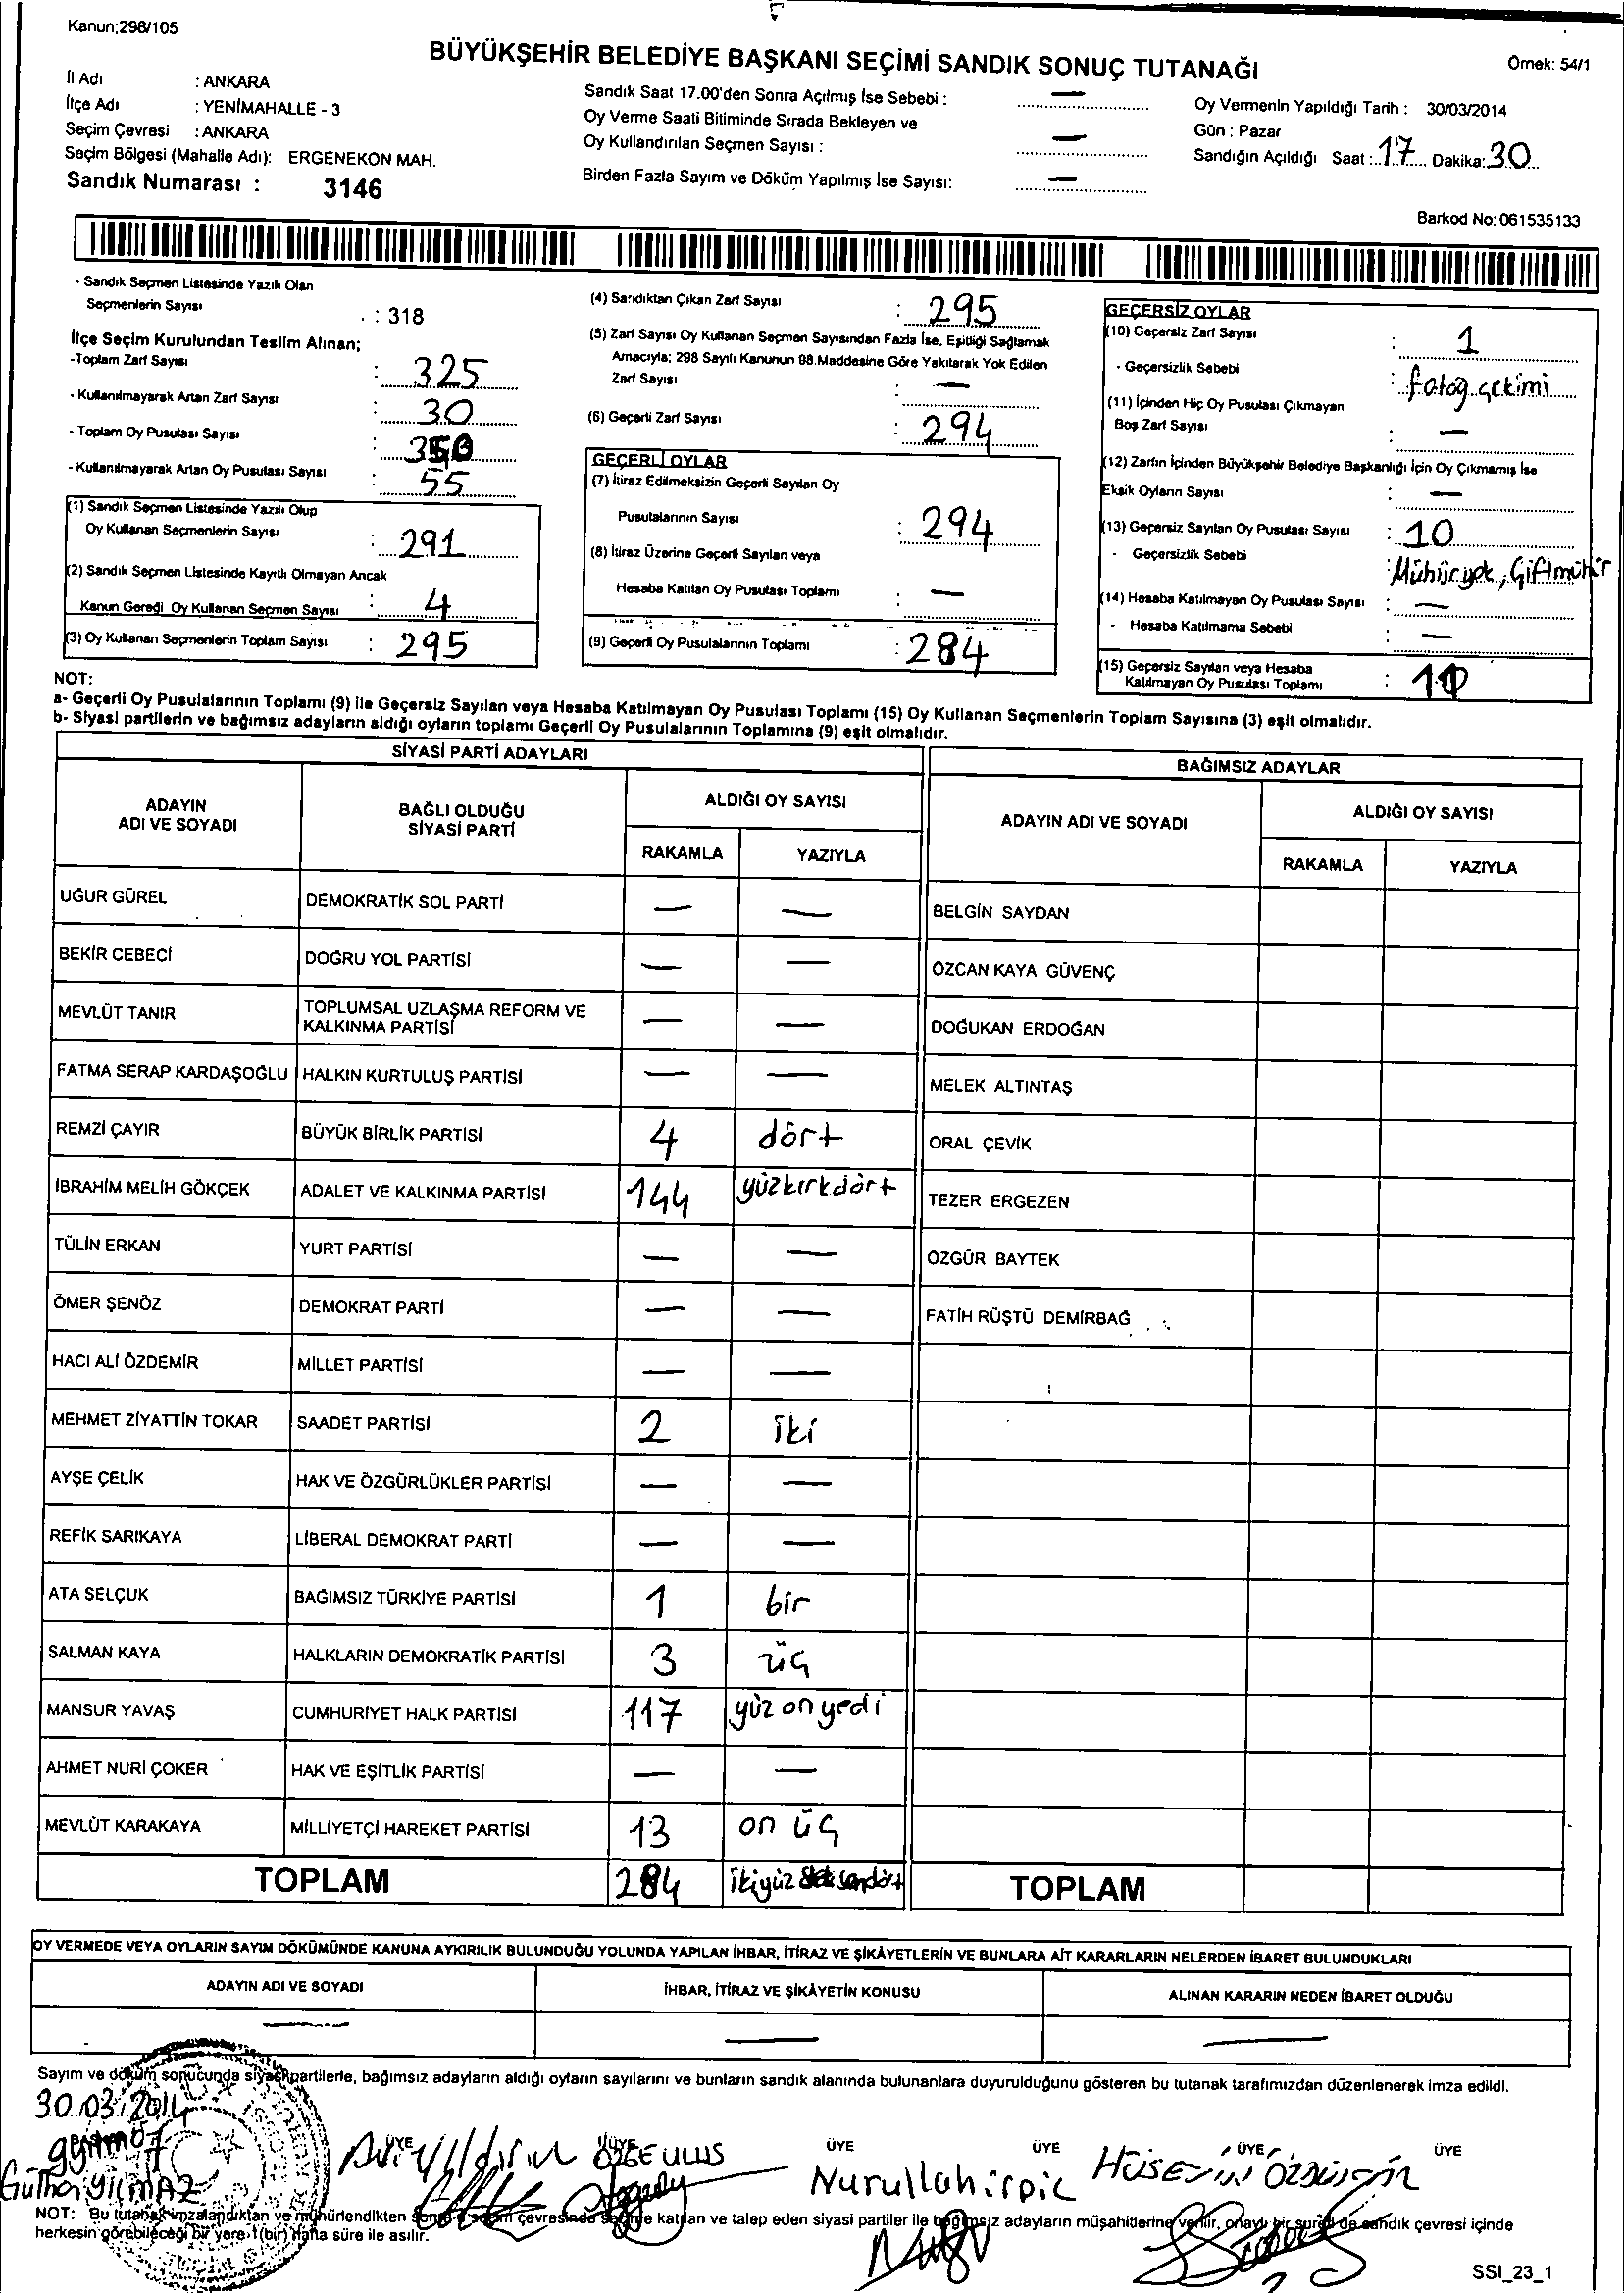 Kanun;298/105
BÜYÜKŞEHİR BELEDİYE BAŞKANI SEÇİMİ SANDIK SONUÇ TUTANAĞI
Örnek: 54/1
İl Adı : ANKARA
İlçe Adı : YENİMAHALLE - 3
Seçim Çevresi : ANKARA
Seçim Bölgesi (Mahalle Adı): ERGENEKON MAH.
Sandık Numarası : 3146
Sandık Saat 17.00'den Sonra Açılmış İse Sebebi : —
Oy Verme Saati Bitiminde Sırada Bekleyen ve
Oy Kullandırılan Seçmen Sayısı : —
Birden Fazla Sayım ve Döküm Yapılmış İse Sayısı: —
Oy Vermenin Yapıldığı Tarih : 30/03/2014
Gün : Pazar
Sandığın Açıldığı Saat : 17 Dakika: 30
Barkod No: 061535133
- Sandık Seçmen Listesinde Yazılı Olan
Seçmenlerin Sayısı : 318
İlçe Seçim Kurulundan Teslim Alınan;
-Toplam Zarf Sayısı : 325
- Kullanılmayarak Artan Zarf Sayısı : 30
- Toplam Oy Pusulası Sayısı :
- Kullanılmayarak Artan Oy Pusulası Sayısı : 55
(1) Sandık Seçmen Listesinde Yazılı Olup
Oy Kullanan Seçmenlerin Sayısı : 291
(2) Sandık Seçmen Listesinde Kayıtlı Olmayan Ancak
Kanun Gereği Oy Kullanan Seçmen Sayısı : 4
(3) Oy Kullanan Seçmenlerin Toplam Sayısı : 295
(4) Sandıktan Çıkan Zarf Sayısı : 295
(5) Zarf Sayısı Oy Kullanan Seçmen Sayısından Fazla İse, Eşitliği Sağlamak
Amacıyla; 298 Sayılı Kanunun 98.Maddesine Göre Yakılarak Yok Edilen
Zarf Sayısı : —
(6) Geçerli Zarf Sayısı : 294
GEÇERLİ OYLAR
(7) İtiraz Edilmeksizin Geçerli Sayılan Oy
Pusulalarının Sayısı : 294
(8) İtiraz Üzerine Geçerli Sayılan veya
Hesaba Katılan Oy Pusulası Toplamı : —
(9) Geçerli Oy Pusulalarının Toplamı : 284
GEÇERSİZ OYLAR
(10) Geçersiz Zarf Sayısı : 1
- Geçersizlik Sebebi : fotoğ. çekimi
(11) İçinden Hiç Oy Pusulası Çıkmayan
Boş Zarf Sayısı : —
(12) Zarfın İçinden Büyükşehir Belediye Başkanlığı İçin Oy Çıkmamış İse
Eksik Oyların Sayısı : —
(13) Geçersiz Sayılan Oy Pusulası Sayısı : 10
- Geçersizlik Sebebi : Mühür yok, Çift mühür
(14) Hesaba Katılmayan Oy Pusulası Sayısı : —
- Hesaba Katılmama Sebebi : —
(15) Geçersiz Sayılan veya Hesaba
Katılmayan Oy Pusulası Toplamı :
NOT:
a- Geçerli Oy Pusulalarının Toplamı (9) ile Geçersiz Sayılan veya Hesaba Katılmayan Oy Pusulası Toplamı (15) Oy Kullanan Seçmenlerin Toplam Sayısına (3) eşit olmalıdır.
b- Siyasi partilerin ve bağımsız adayların aldığı oyların toplamı Geçerli Oy Pusulalarının Toplamına (9) eşit olmalıdır.
SİYASİ PARTİ ADAYLARI
BAĞIMSIZ ADAYLAR
ADAYIN ADI VE SOYADI
BAĞLI OLDUĞU SİYASİ PARTİ
ALDIĞI OY SAYISI
RAKAMLA YAZIYLA
ADAYIN ADI VE SOYADI
ALDIĞI OY SAYISI
RAKAMLA YAZIYLA
UĞUR GÜREL DEMOKRATİK SOL PARTİ — — BELGİN SAYDAN
BEKİR CEBECİ DOĞRU YOL PARTİSİ — — ÖZCAN KAYA GÜVENÇ
MEVLÜT TANIR TOPLUMSAL UZLAŞMA REFORM VE KALKINMA PARTİSİ — — DOĞUKAN ERDOĞAN
FATMA SERAP KARDAŞOĞLU HALKIN KURTULUŞ PARTİSİ — — MELEK ALTINTAŞ
REMZİ ÇAYIR BÜYÜK BİRLİK PARTİSİ 4 dört ORAL ÇEVİK
İBRAHİM MELİH GÖKÇEK ADALET VE KALKINMA PARTİSİ 144 yüzkırkdört TEZER ERGEZEN
TÜLİN ERKAN YURT PARTİSİ — — ÖZGÜR BAYTEK
ÖMER ŞENÖZ DEMOKRAT PARTİ — — FATİH RÜŞTÜ DEMİRBAĞ
HACI ALİ ÖZDEMİR MİLLET PARTİSİ — —
MEHMET ZİYATTİN TOKAR SAADET PARTİSİ 2 iki
AYŞE ÇELİK HAK VE ÖZGÜRLÜKLER PARTİSİ — —
REFİK SARIKAYA LİBERAL DEMOKRAT PARTİ — —
ATA SELÇUK BAĞIMSIZ TÜRKİYE PARTİSİ 1 bir
SALMAN KAYA HALKLARIN DEMOKRATİK PARTİSİ 3 üç
MANSUR YAVAŞ CUMHURİYET HALK PARTİSİ 117 yüz on yedi
AHMET NURİ ÇOKER HAK VE EŞİTLİK PARTİSİ — —
MEVLÜT KARAKAYA MİLLİYETÇİ HAREKET PARTİSİ 13 on üç
TOPLAM 284 ikiyüz seksendört TOPLAM
OY VERMEDE VEYA OYLARIN SAYIM DÖKÜMÜNDE KANUNA AYKIRILIK BULUNDUĞU YOLUNDA YAPILAN İHBAR, İTİRAZ VE ŞİKÂYETLERİN VE BUNLARA AİT KARARLARIN NELERDEN İBARET BULUNDUKLARI
ADAYIN ADI VE SOYADI İHBAR, İTİRAZ VE ŞİKÂYETİN KONUSU ALINAN KARARIN NEDEN İBARET OLDUĞU
— — —
Sayım ve döküm sonucunda siyasi partilerle, bağımsız adayların aldığı oyların sayılarını ve bunların sandık alanında bulunanlara duyurulduğunu gösteren bu tutanak tarafımızdan düzenlenerek imza edildi.
30.03.2014
ÜYE ÜYE ÜYE ÜYE ÜYE ÜYE
YILMAZ Yıldırım ÖZGE ULUS Nurullah HÜSEYİN
NOT: Bu tutanak imzalandıktan ve mühürlendikten sonra seçim çevresinde seçime katılan ve talep eden siyasi partiler ile bağımsız adayların müşahitlerine verilir, onaylı bir sureti de sandık çevresi içinde
herkesin görebileceği bir yere 1 (bir) hafta süre ile asılır.
SSI_23_1